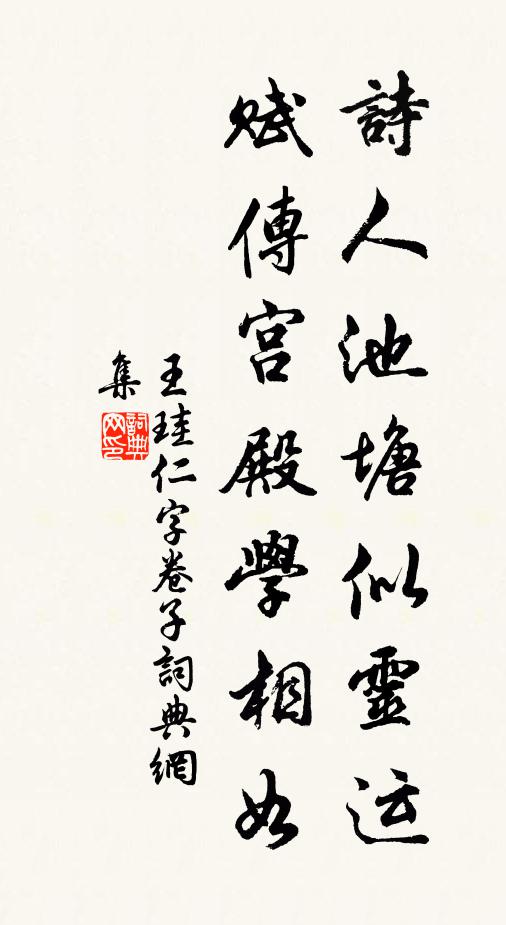 詩人池塘似靈运
賦傳宫殿學相如
王珪仁字卷子詞典網
集
詞典
网印